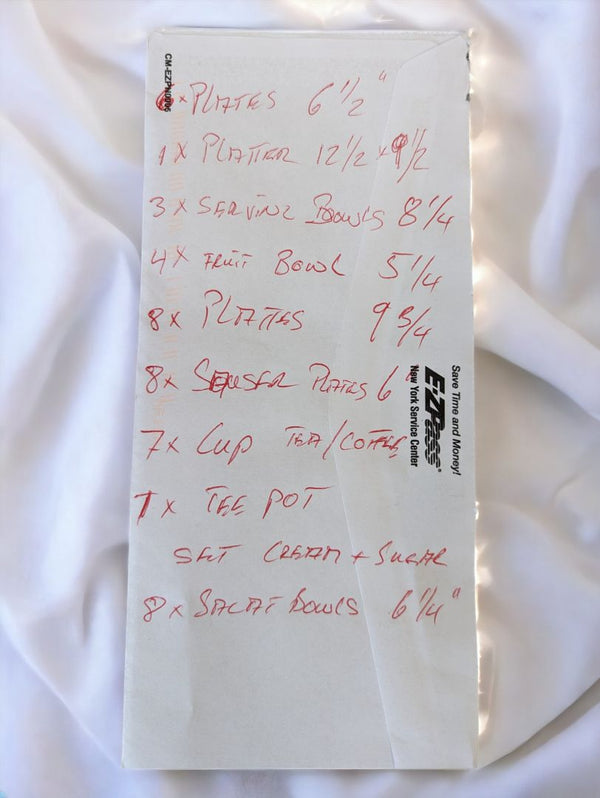 6 x PLATES 6 1/2"
1 x PLATTER 12 1/2 x 9 1/2
3 x SERVING BOWLS 8 1/4
4 x FRUIT BOWL 5 1/4
8 x PLATTES 9 3/4
8 x SAUSER PLATES 6"
7 x CUP TEA/COFFEE
1 x TEE POT
SET CREAM + SUGAR
8 x SALAT BOWLS 6 1/4"
CM-EZPH
Save Time and Money!
E-ZPass®
New York Service Center